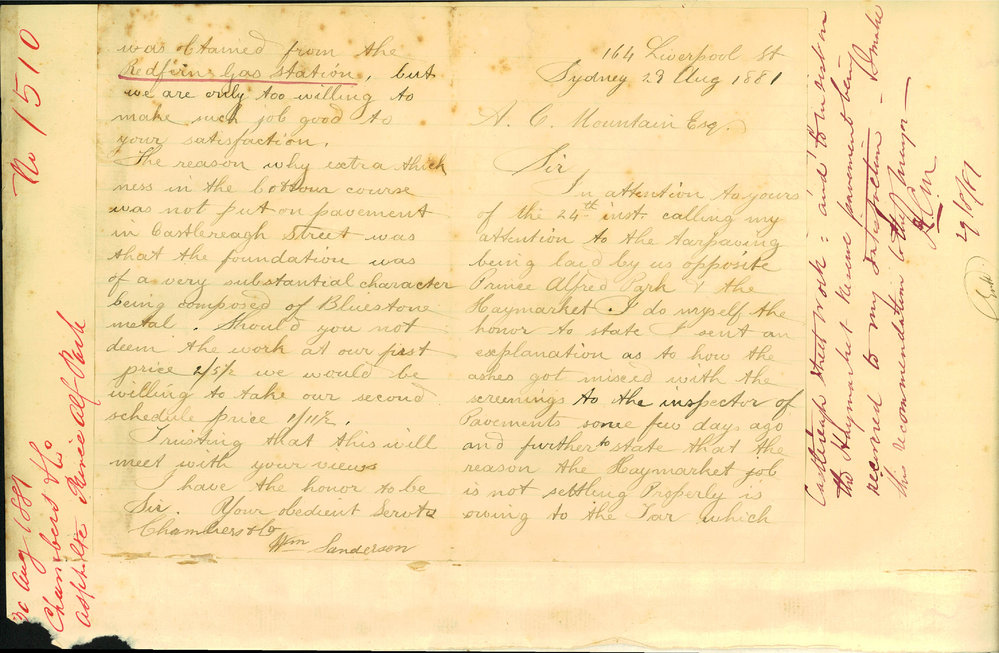 164 Liverpool St
Sydney 29 Aug 1881
A. C. Mountain Esq.
Sir
In attention to yours
of the 24th inst. calling my
attention to the tarpaving
being laid by us opposite
Prince Alfred Park & the
Haymarket. I do myself the
honor to state I sent an
explanation as to how the
ashes got mixed with the
screenings to the inspector of
Pavements some few days ago
and further to state that the
reason the Haymarket job
is not settling Properly is
owing to the Tar which
was obtained from the
Redfern Gas Station, but
we are only too willing to
make such job good to
your satisfaction.
The reason why extra thick
ness in the bottom course
was not put on pavement
in Castlereagh Street was
that the foundation was
of a very substantial character
being composed of Bluestone
metal. Should you not
deem the work at our first
price 2/5½ we would be
willing to take our second
schedule price 1/11½.
Trusting that this will
meet with your views
I have the honor to be
Sir. Your obedient Servts
Chambers & Co
Wm Sanderson
No 1510
30 Aug 1881
Chambers & Co
asphalte Prince Alf Park
Castlereagh street work : and to insist on
the Haymarket & Reserve pavement being
recovered to my satisfaction - I make
this recommendation to the Mayor -
ACM
29/8/81